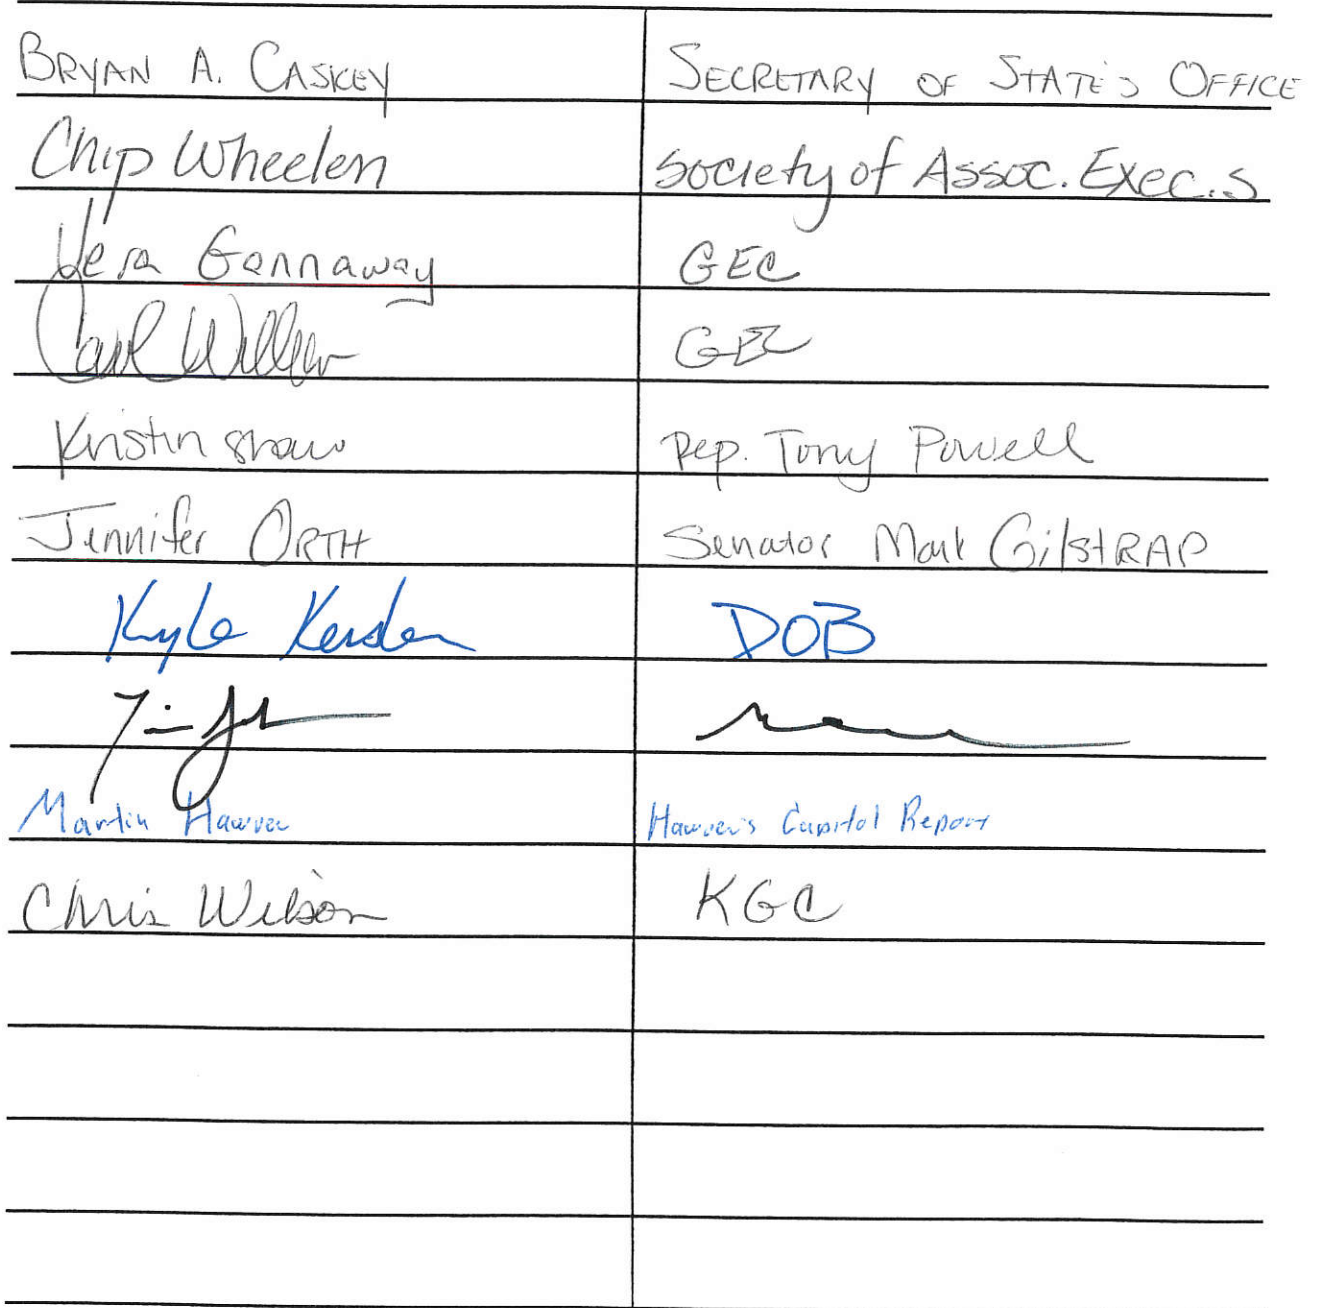 BRYAN A. CASKEY SECRETARY OF STATE'S OFFICE
Chip Wheelen Society of Assoc. Exec.s
Vera Gannaway GEC
Carol Williams GEC
Kristin Shaw Rep. Tony Powell
Jennifer ORTH Senator Mark GilstRAP
Kyle Kessler DOB
Martin Hawver Hawver's Capitol Report
Chris Wilson KGC